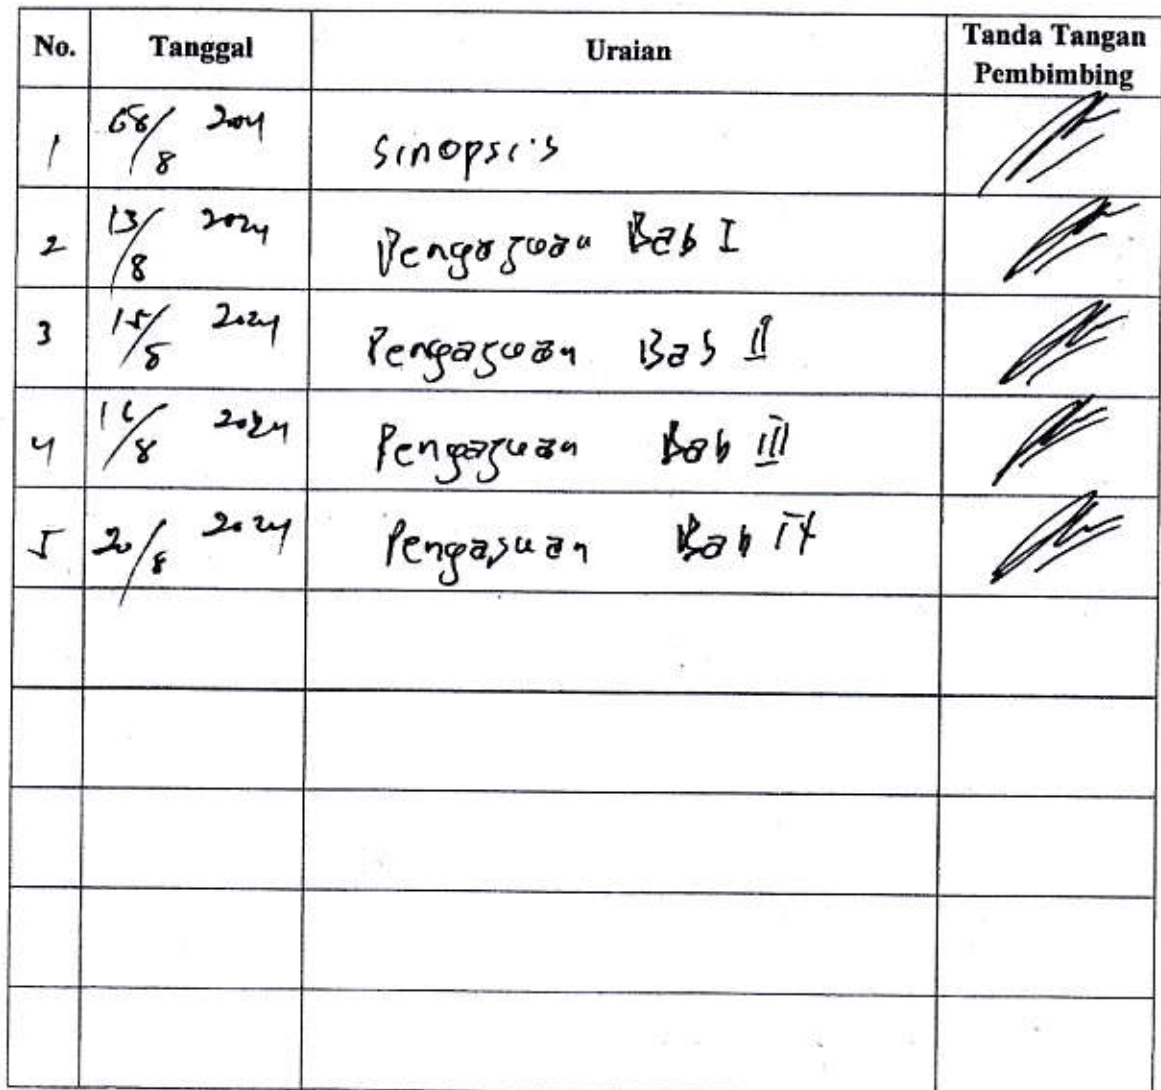 No. Tanggal Uraian Tanda Tangan Pembimbing
1 08/8 2024 Sinopsis
2 13/8 2024 Pengajuan Bab I
3 15/8 2024 Pengajuan Bab II
4 16/8 2024 Pengajuan Bab III
5 20/8 2024 Pengajuan Bab IV